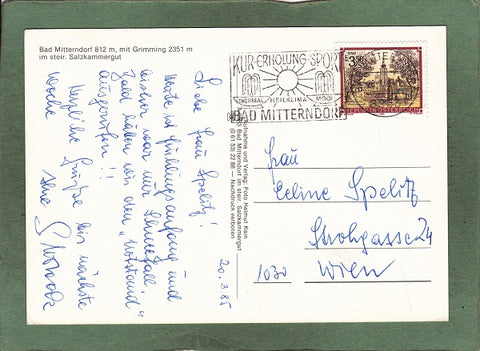 Bad Mitterndorf 812 m, mit Grimming 2351 m
im steir. Salzkammergut
KUR·ERHOLUNG·SPORT
THERMAL HEILKLIMA MOOR
BAD MITTERNDORF
REPUBLIK ÖSTERREICH
Liebe Frau Spelitz!
Heute ist Frühlingsanfang und
bisher war nur Schneefall.
Bald hätten wir den "Notstand"
ausgerufen!!
Herzliche Grüße bis nächste
Woche
Ihre
20.3.85
Aufnahme und Verlag: Foto Helmut Kain
Bad Mitterndorf im steir. Salzkammergut
(0 61 53) 22 86 — Nachdruck verboten
Frau
Celine Spelitz
Strohgasse 24
1030 Wien